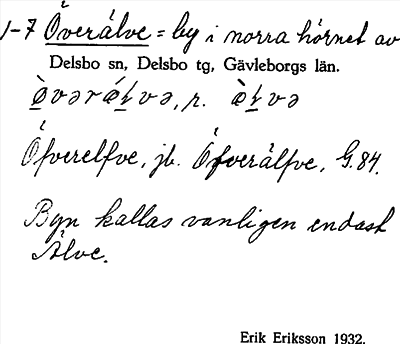 1-7 Överälve = by i norra hörnet av
Delsbo sn, Delsbo tg, Gävleborgs län.
Öfverelfve, jb. Öfverälfve, G.84.
Byn kallas vanligen endast
Älve.
Erik Eriksson 1932.